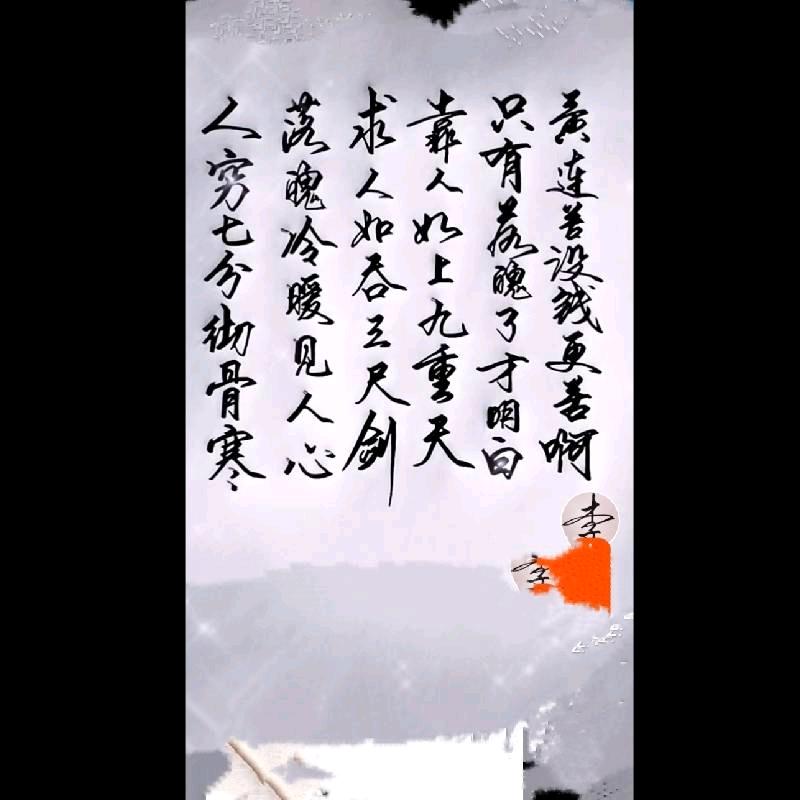 黄连苦没钱更苦啊
只有落魄了才明白
靠人如上九重天
求人如吞三尺剑
落魄冷暖见人心
人穷七分彻骨寒
李